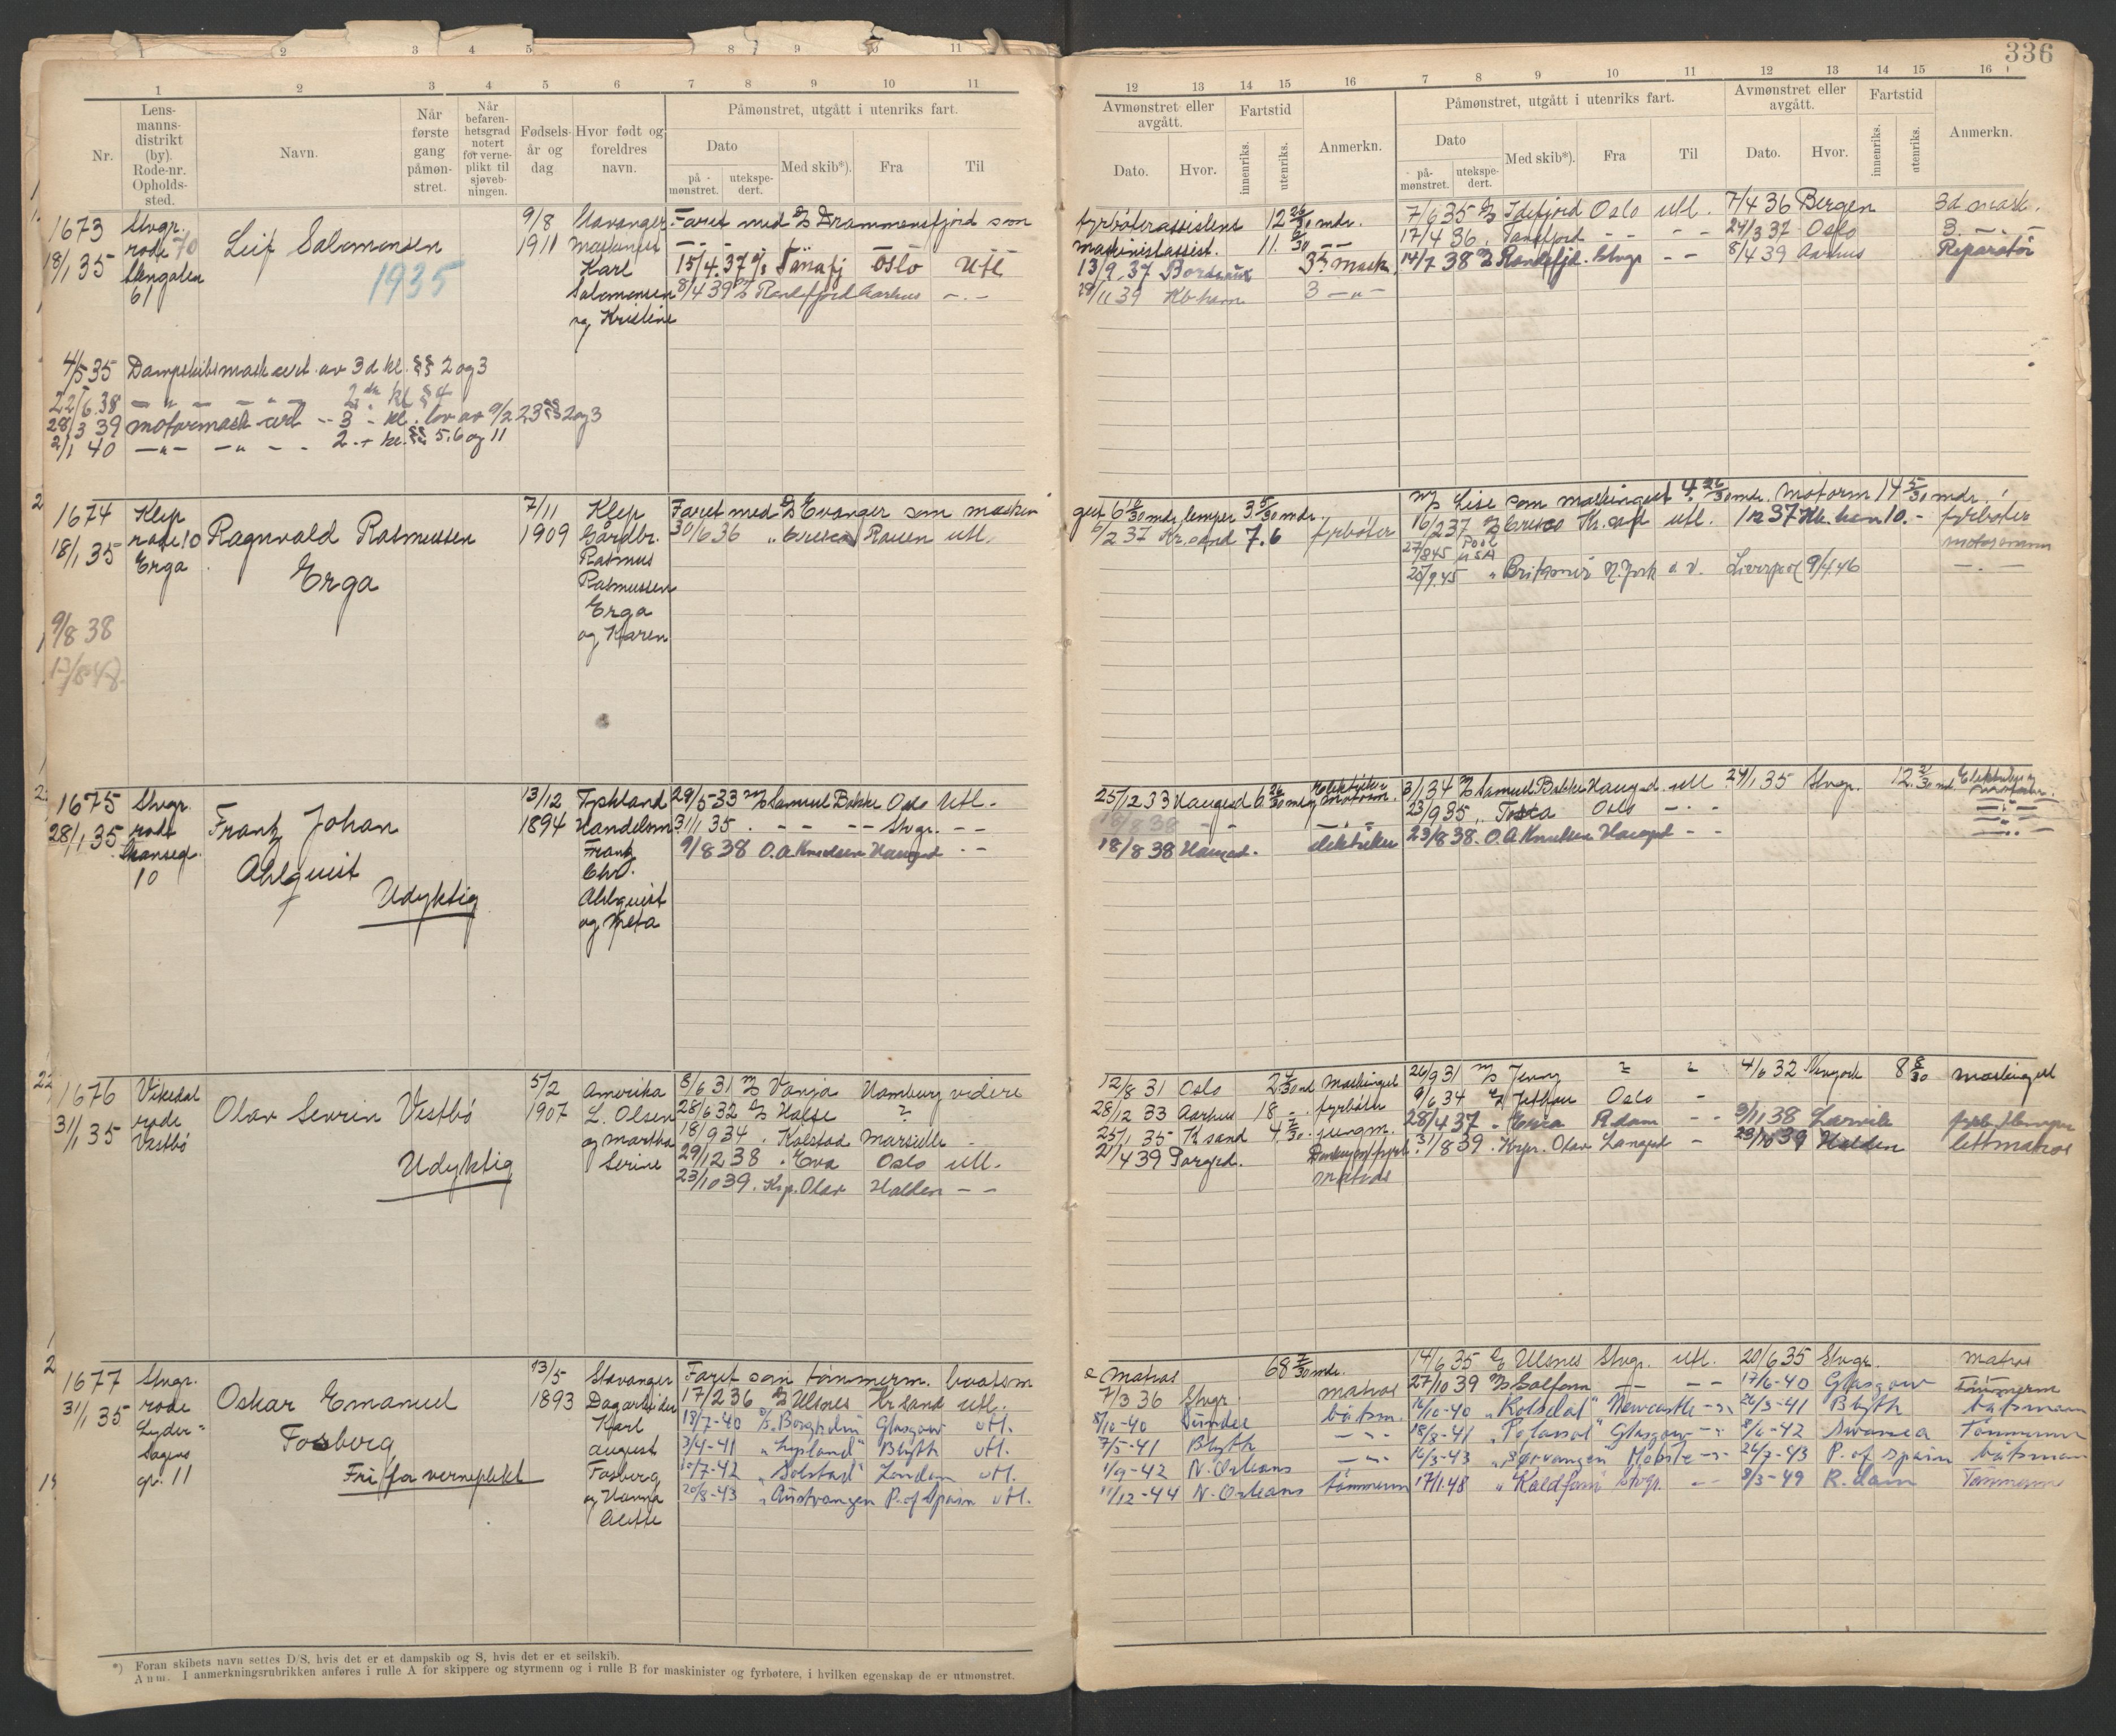 336
1 2 3 4 5 6 7 8 9 10 11
12 13 14 15 16 7 8 9 10 11 12 13 14 15 16
Nr.
Lensmannsdistrikt (by). Rode-nr. Opholdssted.
Navn.
Når første gang påmønstret.
Når befarenhetsgrad notert for vernepliktt til sjøvebningen.
Fødselsår og dag
Hvor født og foreldres navn.
Påmønstret, utgått i utenriks fart.
Dato
påmønstret.
utekspedert.
Med skib*).
Fra
Til
Avmønstret eller avgått.
Dato.
Hvor.
Fartstid
innenriks.
utenriks.
Anmerkn.
Påmønstret, utgått i utenriks fart.
Dato
påmønstret.
utekspedert.
Med skib*).
Fra
Til
Avmønstret eller avgått.
Dato.
Hvor.
Fartstid
innenriks.
utenriks.
Anmerkn.
1673 Stvgr. Leif Salomonsen 9/8 Stavanger Faret med D/S Drammensfjord som
18/1 35 rode 70 1911
61 1935 Karl 15/4.37 Tanafj Oslo Utl
Salomonsen 8/4 39 Randsfjord Aarhus - . -
og Kristine
fyrbøterassistent 12 26/30 mdr. 7/6 35 Idefjord Oslo utl. 7/4 36 Bergen 3d mask.
maskinistassist. 11 17/4 36 Tanafjord - - - - 24/3 37 Oslo 3. - . -
13/9 37 Bordeaux 3. mask. 14/7 38 Randsfjd. Stvgr - - 8/4 39 Aarhus Reparatør
29/11 39 Kbhavn 3 - " -
4/5 35 Dampskibsmask cert. av 3d kl. §§ 2 og 3
22/6.38 - " - - " - 2. kl § 4
28/3 39 motormask cert - - 3 - kl. lov av 9/2 23 §§ 2 og 3
2/1 40 - " - - " - - 2. - kl. §§ 5, 6 og 11
1674 Klep Ragnvald Rasmussen 7/11 Klep Faret med D/S Evanger som maskin
18/1 35 rode 10 Erga 1909 Gårdbr. 30/6 36 Rouen utl.
Erga Rasmus
Rasmussen
Erga
og Karen
9/8 38
13/8-48
gut 6 mdr, lemper 3 5/30 mdr. M/S Lise som maskingut 4 26/30 mdr. Motorm 14 5/30 mdr.
6/2 37 Kr.sand 7. 6 fyrbøter 16/2 37 utl. 37 Kb.havn 10. - fyrbøter
27/8 45 Pool USA motormann
25/9.45 " Briksnes N. York Liverpool 9/4.46 - . -
1675 Stvgr. Franz Johan 13/12 Tyskland 29/5-33 M/S Samuel Bakke Oslo Utl.
28/1 35 rode Ahlquist 1894 Handelsm 31/1 35 . - - - - Stvgr. - -
10 Udyktig Franz 9/8 38 O.A. Knudsen Haugsd - -
Chr.
Ahlquist
og Meta
25/12 33 Haugesd 6. 26/30 mdr 3/1 34 M/S Samuel Bakke Haugsd. utl. 24/1 35 Stvgr. 12. mdr.
18/8 38 - - 23/9 35 „ Tosca Oslo - . -
18/8 38 Haugsd. elektriker 23/8 38. O.A Knudsen Haugsd - -
1676 Vikedal Olav Sevrin Vestbø 5/2 Amerika 8/6 31 M/S Vanja Hamburg videre
31/1 35 rode Udyktig 1907 L. Olsen 28/6 32 ?
Vestbø og Martha 18/9 34 . Kolstad Marseille -
Serine 29/12 38 . Eva Oslo utl.
23/10 39. Ksp. Olav Halden - -
12/8 31 Oslo 2 mdr Maskingut 26/9 31 M/S Jenny 4/6 32 Newyork 8 8/30 maskingut
28/12 33 Aarhus 18 - . fyrbøter 9/6 34 Oslo -
25/1 35 K sand 4 jungm. 28/4 37 R.dam - - 9/11 38 Larvik
2/4 39 Porsgd. 31/8 39 . Krpr. Olav Langesd - 23/10 39 Halden lettmatros
matros
1677 Stvgr. Oskar Emanuel 13/5 Stavanger Faret som tømmerm. baatsm
31/1 35 rode Fosberg 1893 Dagarbeider 17/2 36 D/S Ulsnes Kr.sand utl.
Lyder Fri for verneplikt Karl 18/7-40 Borgholm Glasgow utl.
Sagens August 3/4-41 „ Lysland" Blyth utl.
gt. 11 Fosberg 10/7-42 „ Solstad" London utl.
og Hanna 20/8-43 „ Austvangen P. of Spain utl.
Alette
& Matros 68 2/30 mdr. 14/6 35 D/S Ulsnes Stvgr. utl. 20/6 35 Stvgr. Matros
7/3 36 Stvgr. matros 27/10 39 Galfonn - - - - 17/6-40 Glasgow Tømmerm
8/10-40 Sunder båtsm. 16/10-40 „ Kolsdal" Newcastle - " - 24/3-41 Blyth båtsmann
7/5-41 Blyth - " - 18/8-41 Glasgow - " - 8/6-42 Swansea Tømmerm
1/9-42 N. Orleans - " - 16/3-43 „ Sørvangen" Mobile - " - 26/7-43 P. of Spain båtsmann
11/12-44 N. Orleans tømmerm 17/1.48 „ Kaldfonn" Stvgr. - - 8/3-49 R.dam Tømmerm
*) Foran skibets navn settes D/S, hvis det er et dampskib og S, hvis det er et seilskib.
Anm. I anmerkningsrubrikken anføres i rulle A for skippere og styrmenn og i rulle B for maskinister og fyrbøtere, i hvilken egenskap de er utmønstret.